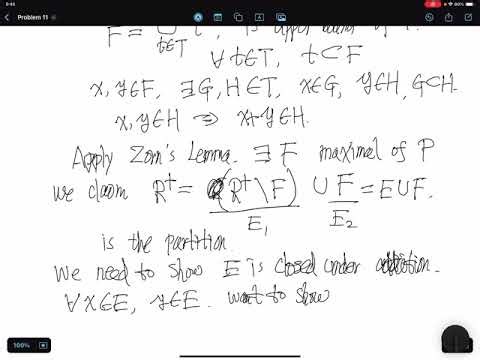 9:41
Problem 11
F = ∪ t, is upper bound of T.
t∈T
∀ t∈T, t⊂F
x, y∈F, ∃G, H∈T, x∈G, y∈H, G⊂H.
x, y∈H ⇒ x+y∈H.
Apply Zorn's Lemma. ∃ F maximal of P
we claim R⁺ = (R⁺\F) ∪ F = E∪F.
E₁ E₂
is the partition.
We need to show E is closed under addition.
∀ x∈E, y∈E. want to show
100%